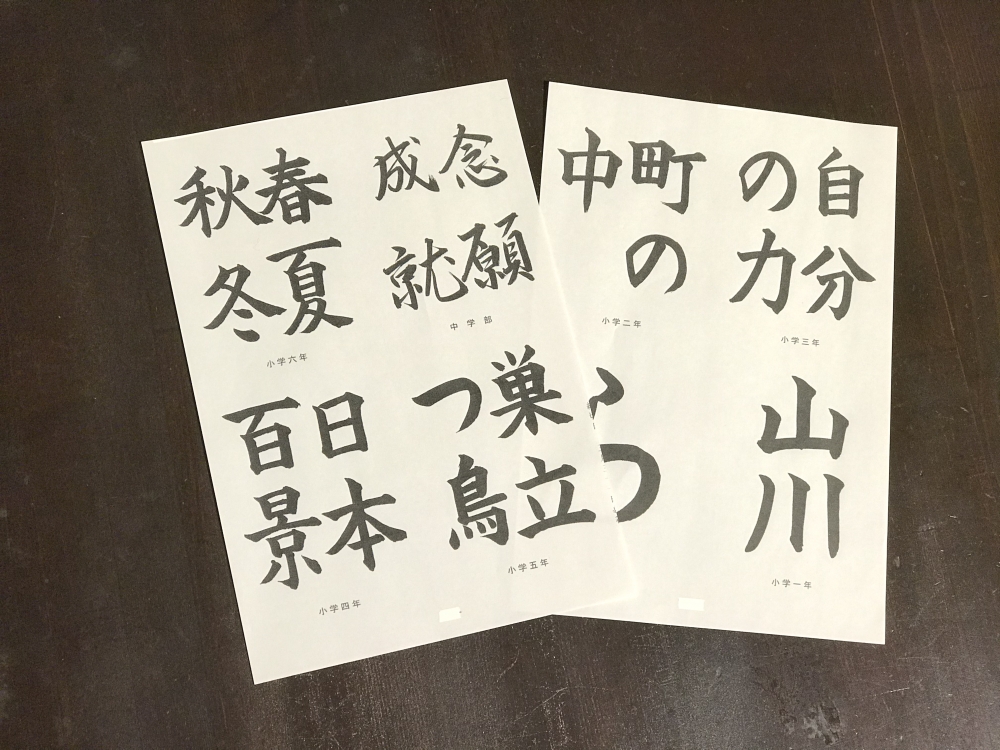 自分
の力
小学三年
町の
中
小学二年
山川
小学一年
念願
成就
中学部
春夏
秋冬
小学六年
巣立
つ鳥
小学五年
日本
百景
小学四年